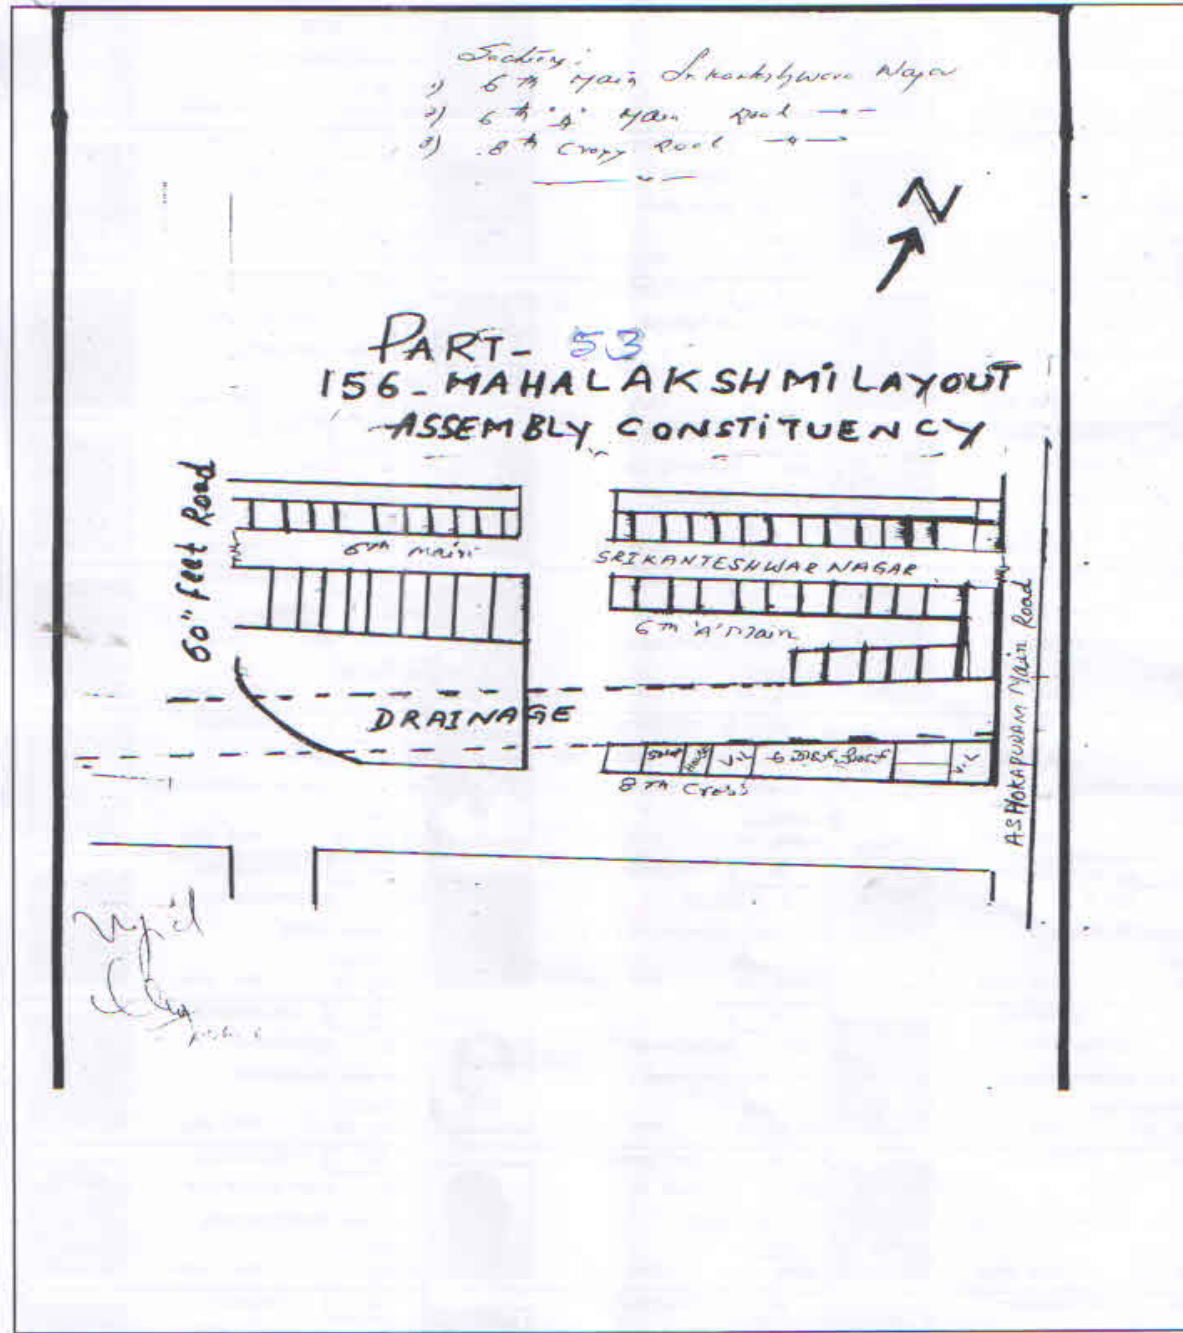 1) 6th Main Nagar
2) 6th 'A' Main Road —"—
3) 8th Cross Road —"—
N
PART- 53
156 - MAHALAKSHMI LAYOUT
ASSEMBLY CONSTITUENCY
60" feet Road
6th main
SRIKANTESHWAR NAGAR
6th 'A' Main
DRAINAGE
V.L
V.L
8th Cross
ASHOKAPURAM Main Road